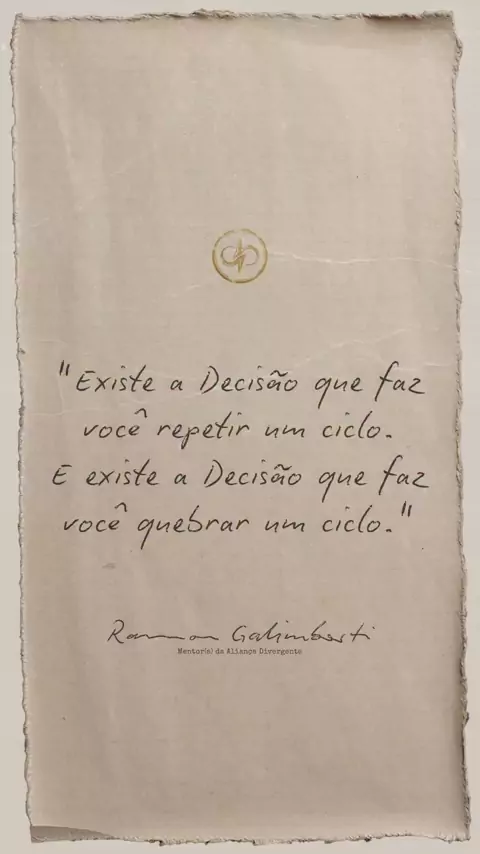 "Existe a Decisão que faz
você repetir um ciclo.
E existe a Decisão que faz
você quebrar um ciclo."
Ramon Galimberti
Mentor(s) da Aliança Divergente